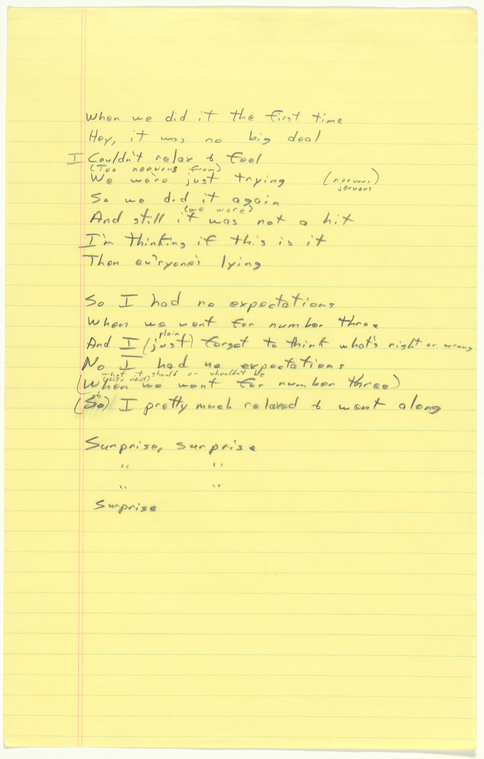 When we did it the first time
Hey, it was no big deal
I Couldn't relax & feel
(Too nervous from)
We were just trying (nervous)
nervous
So we did it again
(we were)
And still it was not a hit
I'm thinking if this is it
Then ev'ryone's lying
So I had no expectations
When we went for number three
plain
And I (just) forgot to think what's right or wrong
No I had no expectations
what it should or shouldn't be
(When we went for number three)
(So) I pretty much relaxed & went along
Surprise, surprise
" "
" "
Surprise